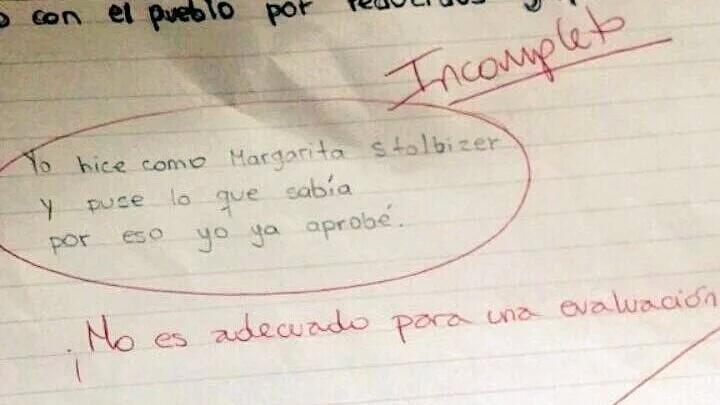 con el pueblo por
Incompleto
Yo hice como Margarita Stolbizer
y puse lo que sabía
por eso yo ya aprobé.
¡No es adecuado para una evaluación